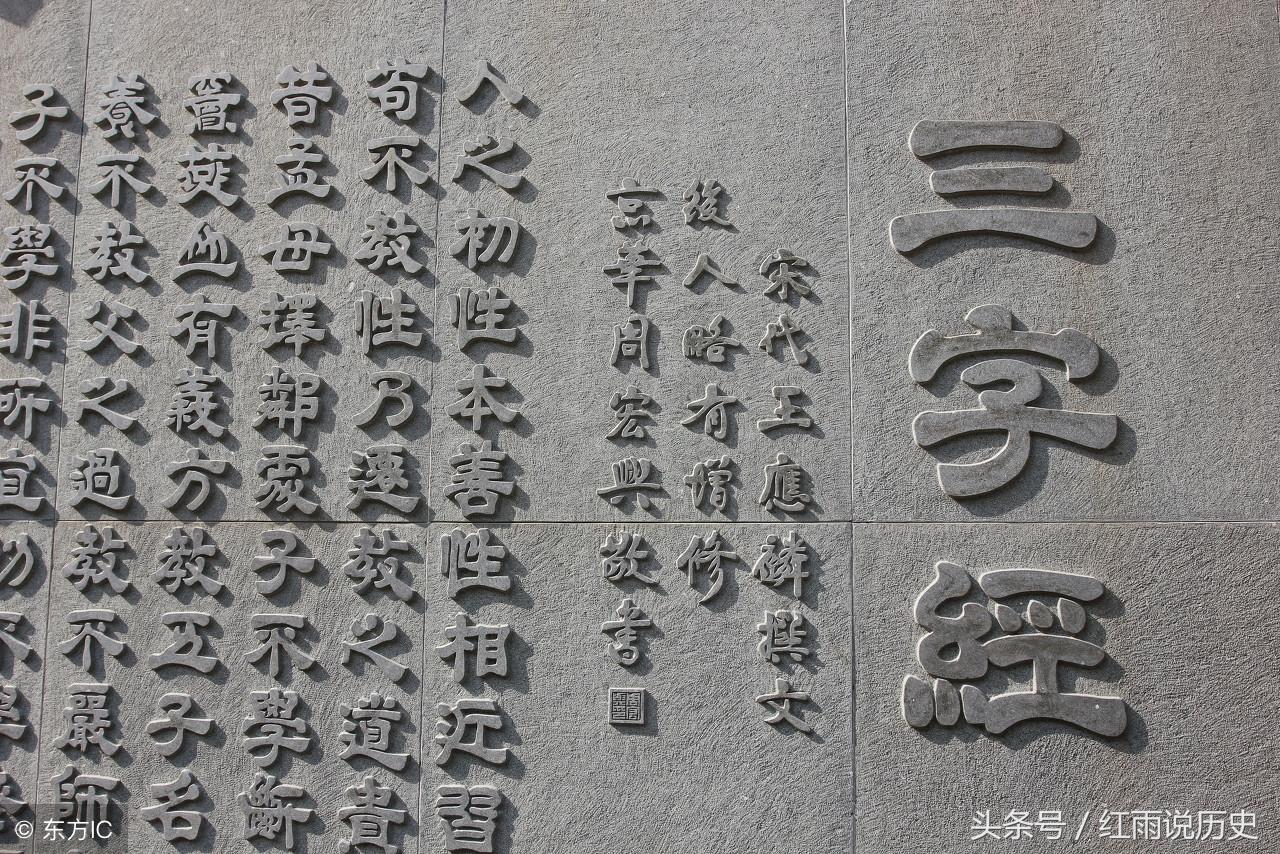 三字經
宋代王應磷撰文
後人略有增修
京華周宏興敬書
人之初性本善性相近習
苟不教性乃遷教之道貴
昔孟母擇鄰處子不學斷
竇燕山有義方教五子名
養不教父之過教不嚴師
子不學非所宜幼不學
© 东方IC
头条号 / 红雨说历史